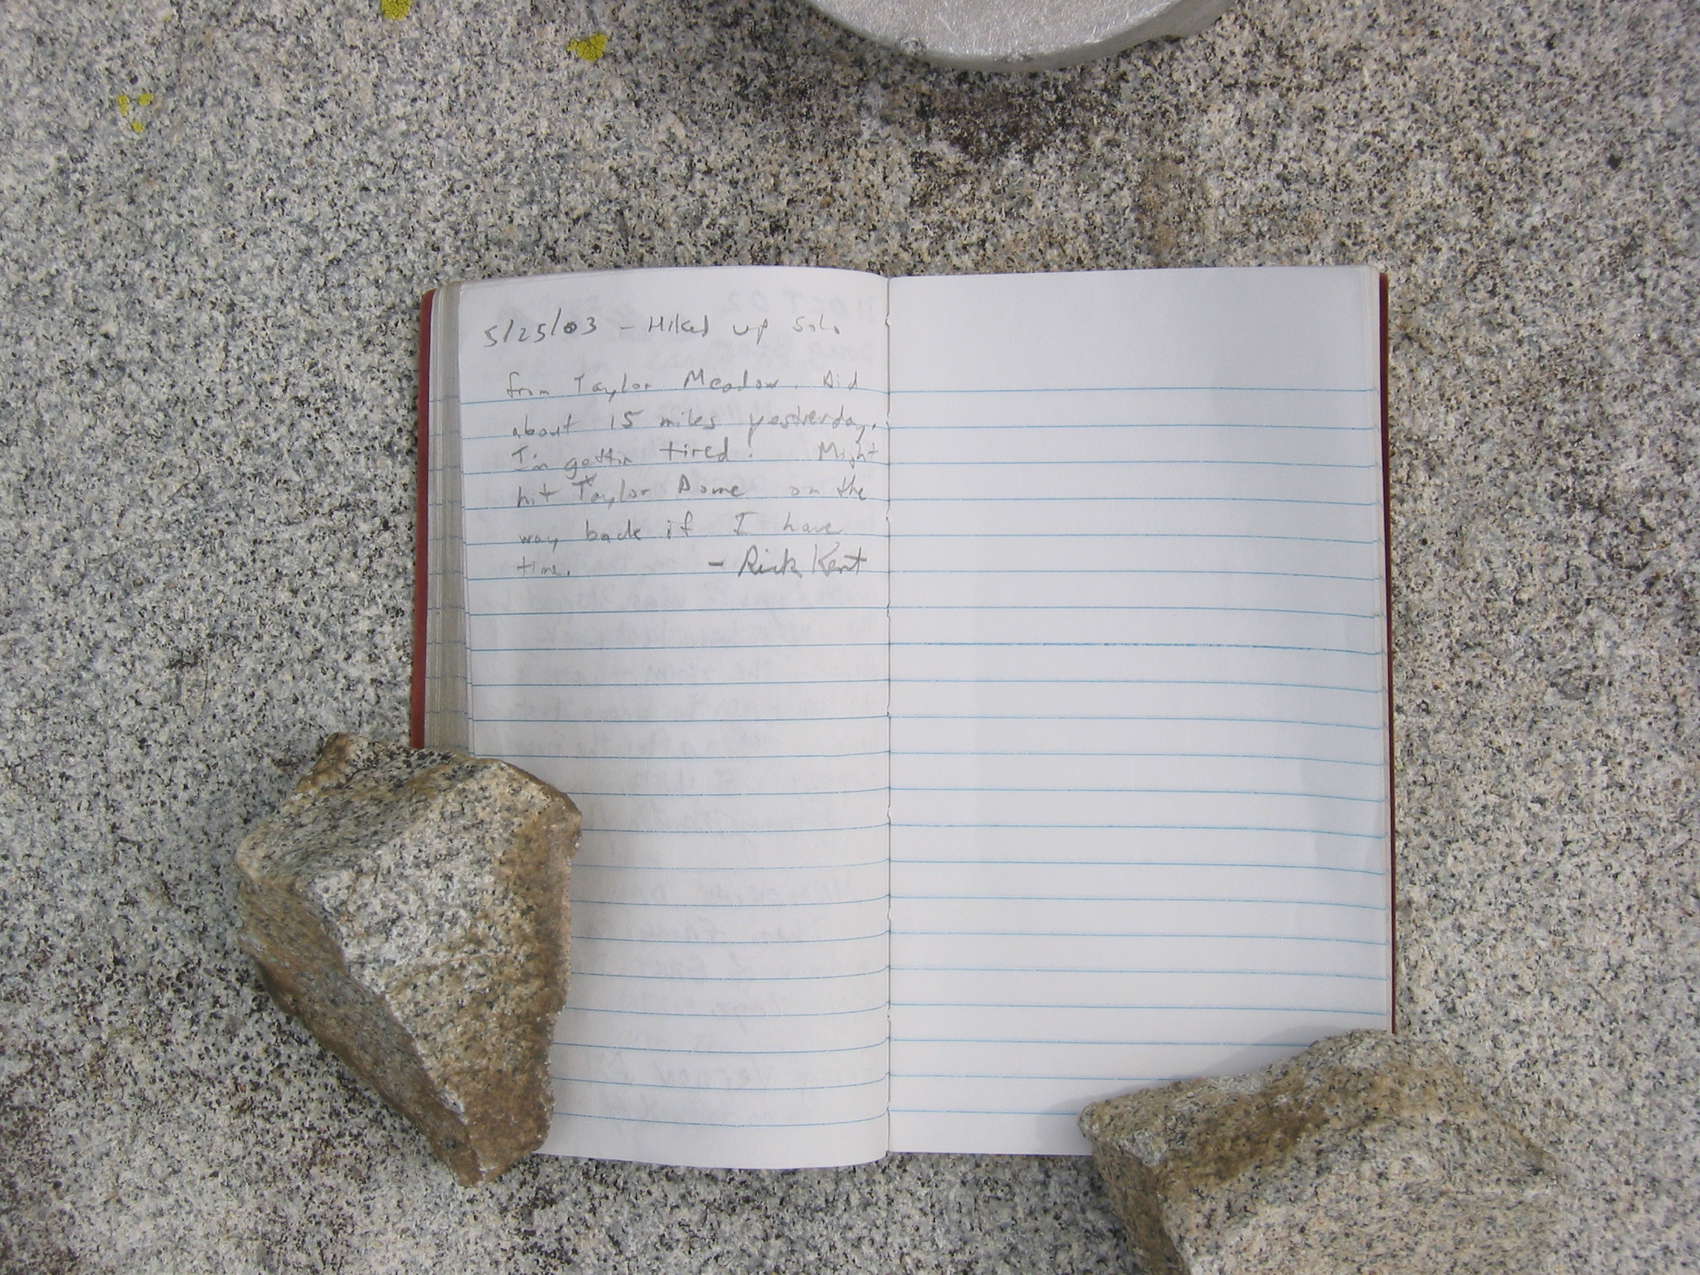 5/25/03 - Hiked up Solo
from Taylor Meadow. Did
about 15 miles yesterday.
I'm gettin tired! Might
hit Taylor Dome on the
way back if I have
time. - Rick Kent